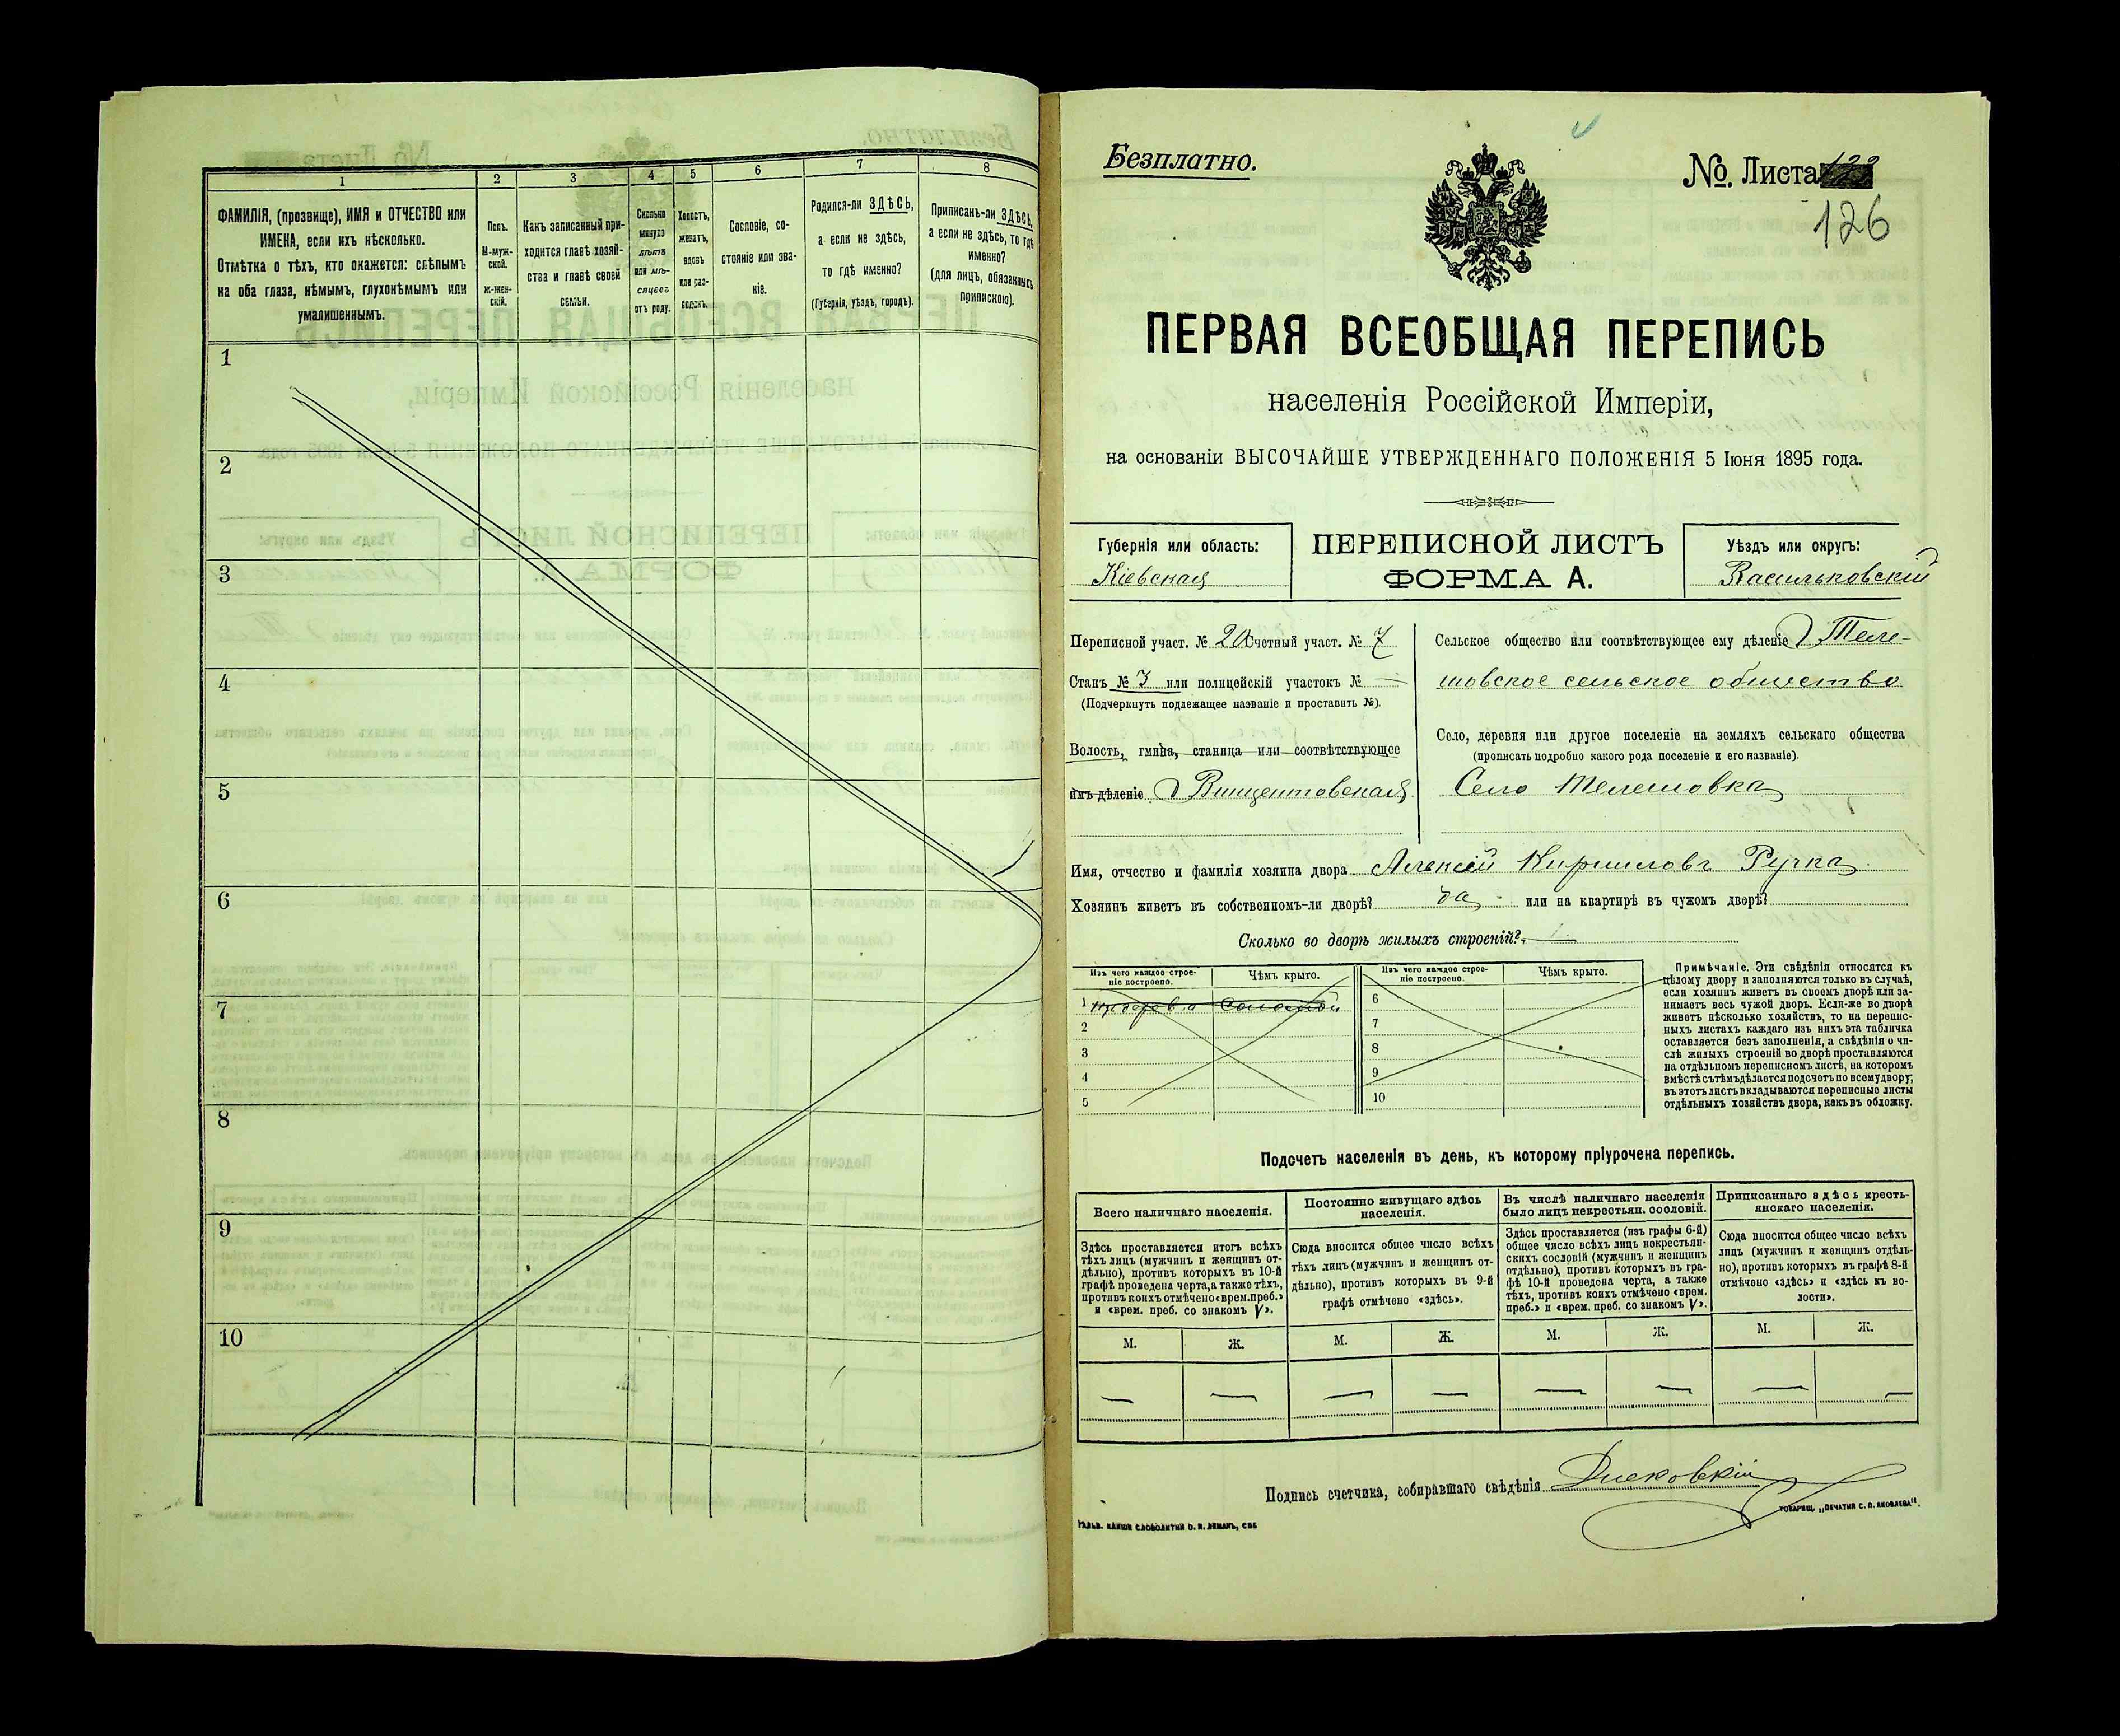 1 2 3 4 5 6 7 8
ФАМИЛІЯ, (прозвище), ИМЯ и ОТЧЕСТВО или
ИМЕНА, если ихъ нѣсколько.
Отмѣтка о тѣхъ, кто окажется: слѣпымъ
на оба глаза, нѣмымъ, глухонѣмымъ или
умалишеннымъ.
Полъ.
М-муж-
ской.
Ж-жен-
скій.
Какъ записанный при-
ходится главѣ хозяй-
ства и главѣ своей
семьи.
Сколько
минуло
лѣтъ
или мѣ-
сяцевъ
отъ роду.
Холостъ,
женатъ,
вдовъ
или раз-
веденъ.
Сословіе, со-
стояніе или зва-
ніе.
Родился-ли ЗДѢСЬ,
а если не здѣсь,
то гдѣ именно?
(Губернія, уѣздъ, городъ).
Приписанъ-ли ЗДѢСЬ,
а если не здѣсь, то гдѣ
именно?
(для лицъ, обязанныхъ
припискою).
1
2
3
4
5
6
7
8
9
10
Безплатно.
№. Листа
126
ПЕРВАЯ ВСЕОБЩАЯ ПЕРЕПИСЬ
населенія Россійской Имперіи,
на основаніи ВЫСОЧАЙШЕ УТВЕРЖДЕННАГО ПОЛОЖЕНІЯ 5 Іюня 1895 года.
Губернія или область:
Кіевская
ПЕРЕПИСНОЙ ЛИСТЪ
ФОРМА А.
Уѣздъ или округъ:
Васильковскій
Переписной участ. № 20 Счетный участ. № 7
Станъ № 3 или полицейскій участокъ № —
(Подчеркнуть подлежащее названіе и проставить №).
Волость, гмина, станица или соотвѣтствующее
имъ дѣленіе Винцентовская
Сельское общество или соотвѣтствующее ему дѣленіе Теле-
шовское сельское общество
Село, деревня или другое поселеніе на земляхъ сельскаго общества
(прописать подробно какого рода поселеніе и его названіе).
Село Телешовка
Имя, отчество и фамилія хозяина двора Алексѣй Кирилловъ Ручка
Хозяинъ живетъ въ собственномъ-ли дворѣ? да или на квартирѣ въ чужомъ дворѣ?
Сколько во дворѣ жилыхъ строеній?
Изъ чего каждое строе-
ніе построено.
Чѣмъ крыто.
Изъ чего каждое строе-
ніе построено.
Чѣмъ крыто.
1 Соломой 6
2 7
3 8
4 9
5 10
Примѣчаніе. Эти свѣдѣнія относятся къ
цѣлому двору и заполняются только въ случаѣ,
если хозяинъ живетъ въ своемъ дворѣ или за-
нимаетъ весь чужой дворъ. Если-же во дворѣ
живетъ нѣсколько хозяйствъ, то на перепис-
ныхъ листахъ каждаго изъ нихъ эта табличка
оставляется безъ заполненія, а свѣдѣнія о чи-
слѣ жилыхъ строеній во дворѣ проставляются
на отдѣльномъ переписномъ листѣ, на которомъ
вмѣстѣ съ тѣмъ дѣлается подсчетъ по всему двору;
въ этотъ листъ вкладываются переписные листы
отдѣльныхъ хозяйствъ двора, какъ въ обложку.
Подсчетъ населенія въ день, къ которому пріурочена перепись.
Всего наличнаго населенія.
Здѣсь проставляется итогъ всѣхъ
тѣхъ лицъ (мужчинъ и женщинъ от-
дѣльно), противъ которыхъ въ 10-й
графѣ проведена черта, а также тѣхъ,
противъ коихъ отмѣчено «врем. преб.»
и «врем. преб. со знакомъ V».
Постоянно живущаго здѣсь
населенія.
Сюда вносится общее число всѣхъ
тѣхъ лицъ (мужчинъ и женщинъ от-
дѣльно), противъ которыхъ въ 9-й
графѣ отмѣчено «здѣсь».
Въ числѣ наличнаго населенія
было лицъ некрестьян. сословій.
Здѣсь проставляется (изъ графы 6-й)
общее число всѣхъ лицъ некрестьян-
скихъ сословій (мужчинъ и женщинъ
отдѣльно), противъ которыхъ въ гра-
фѣ 10-й проведена черта, а также
тѣхъ, противъ коихъ отмѣчено «врем.
преб.» и «врем. преб. со знакомъ V».
Приписаннаго здѣсь кресть-
янскаго населенія.
Сюда вносится общее число всѣхъ
лицъ (мужчинъ и женщинъ отдѣль-
но), противъ которыхъ въ графѣ 8-й
отмѣчено «здѣсь» и «здѣсь къ во-
лости».
М. Ж. М. Ж. М. Ж. М. Ж.
— — — — — — — —
Подпись счетчика, собиравшаго свѣдѣнія
ТОВАРИЩ. „ПЕЧАТНЯ С. П. ЯКОВЛЕВА".